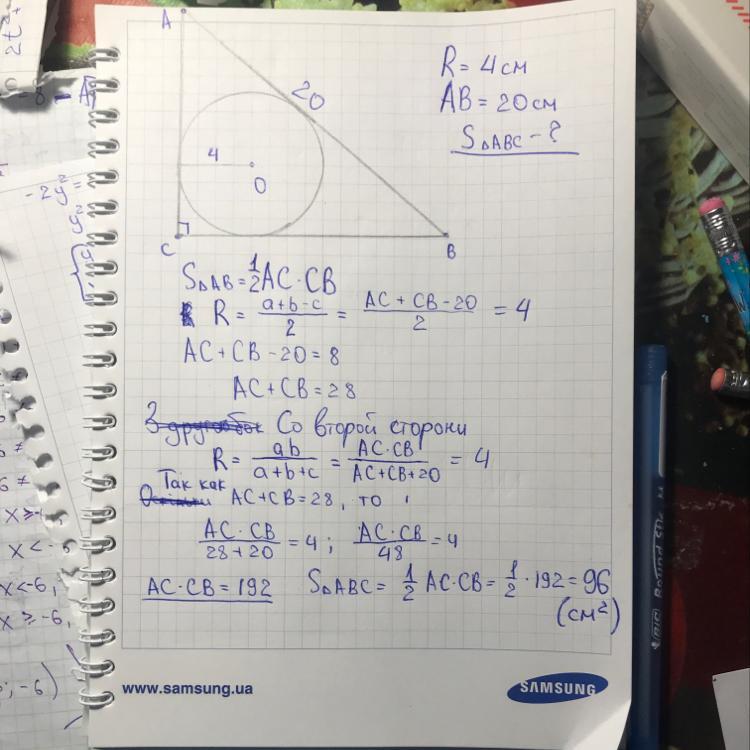 A
20
4
O
C
B
R = 4 см
AB = 20 см
S△ABC - ?
S△AB = 1/2 AC · CB
R = (a+b-c)/2 = (AC + CB - 20)/2 = 4
AC + CB - 20 = 8
AC + CB = 28
Со второй сторони
R = ab/(a+b+c) = AC·CB/(AC+CB+20) = 4
Так как
AC+CB = 28, то
AC·CB/(28+20) = 4; AC·CB/48 = 4
AC·CB = 192 S△ABC = 1/2 AC·CB = 1/2 · 192 = 96
(см²)
www.samsung.ua
SAMSUNG
-2y²=
y²
x < -6
x<-6,
x ≥ -6,
; -6)